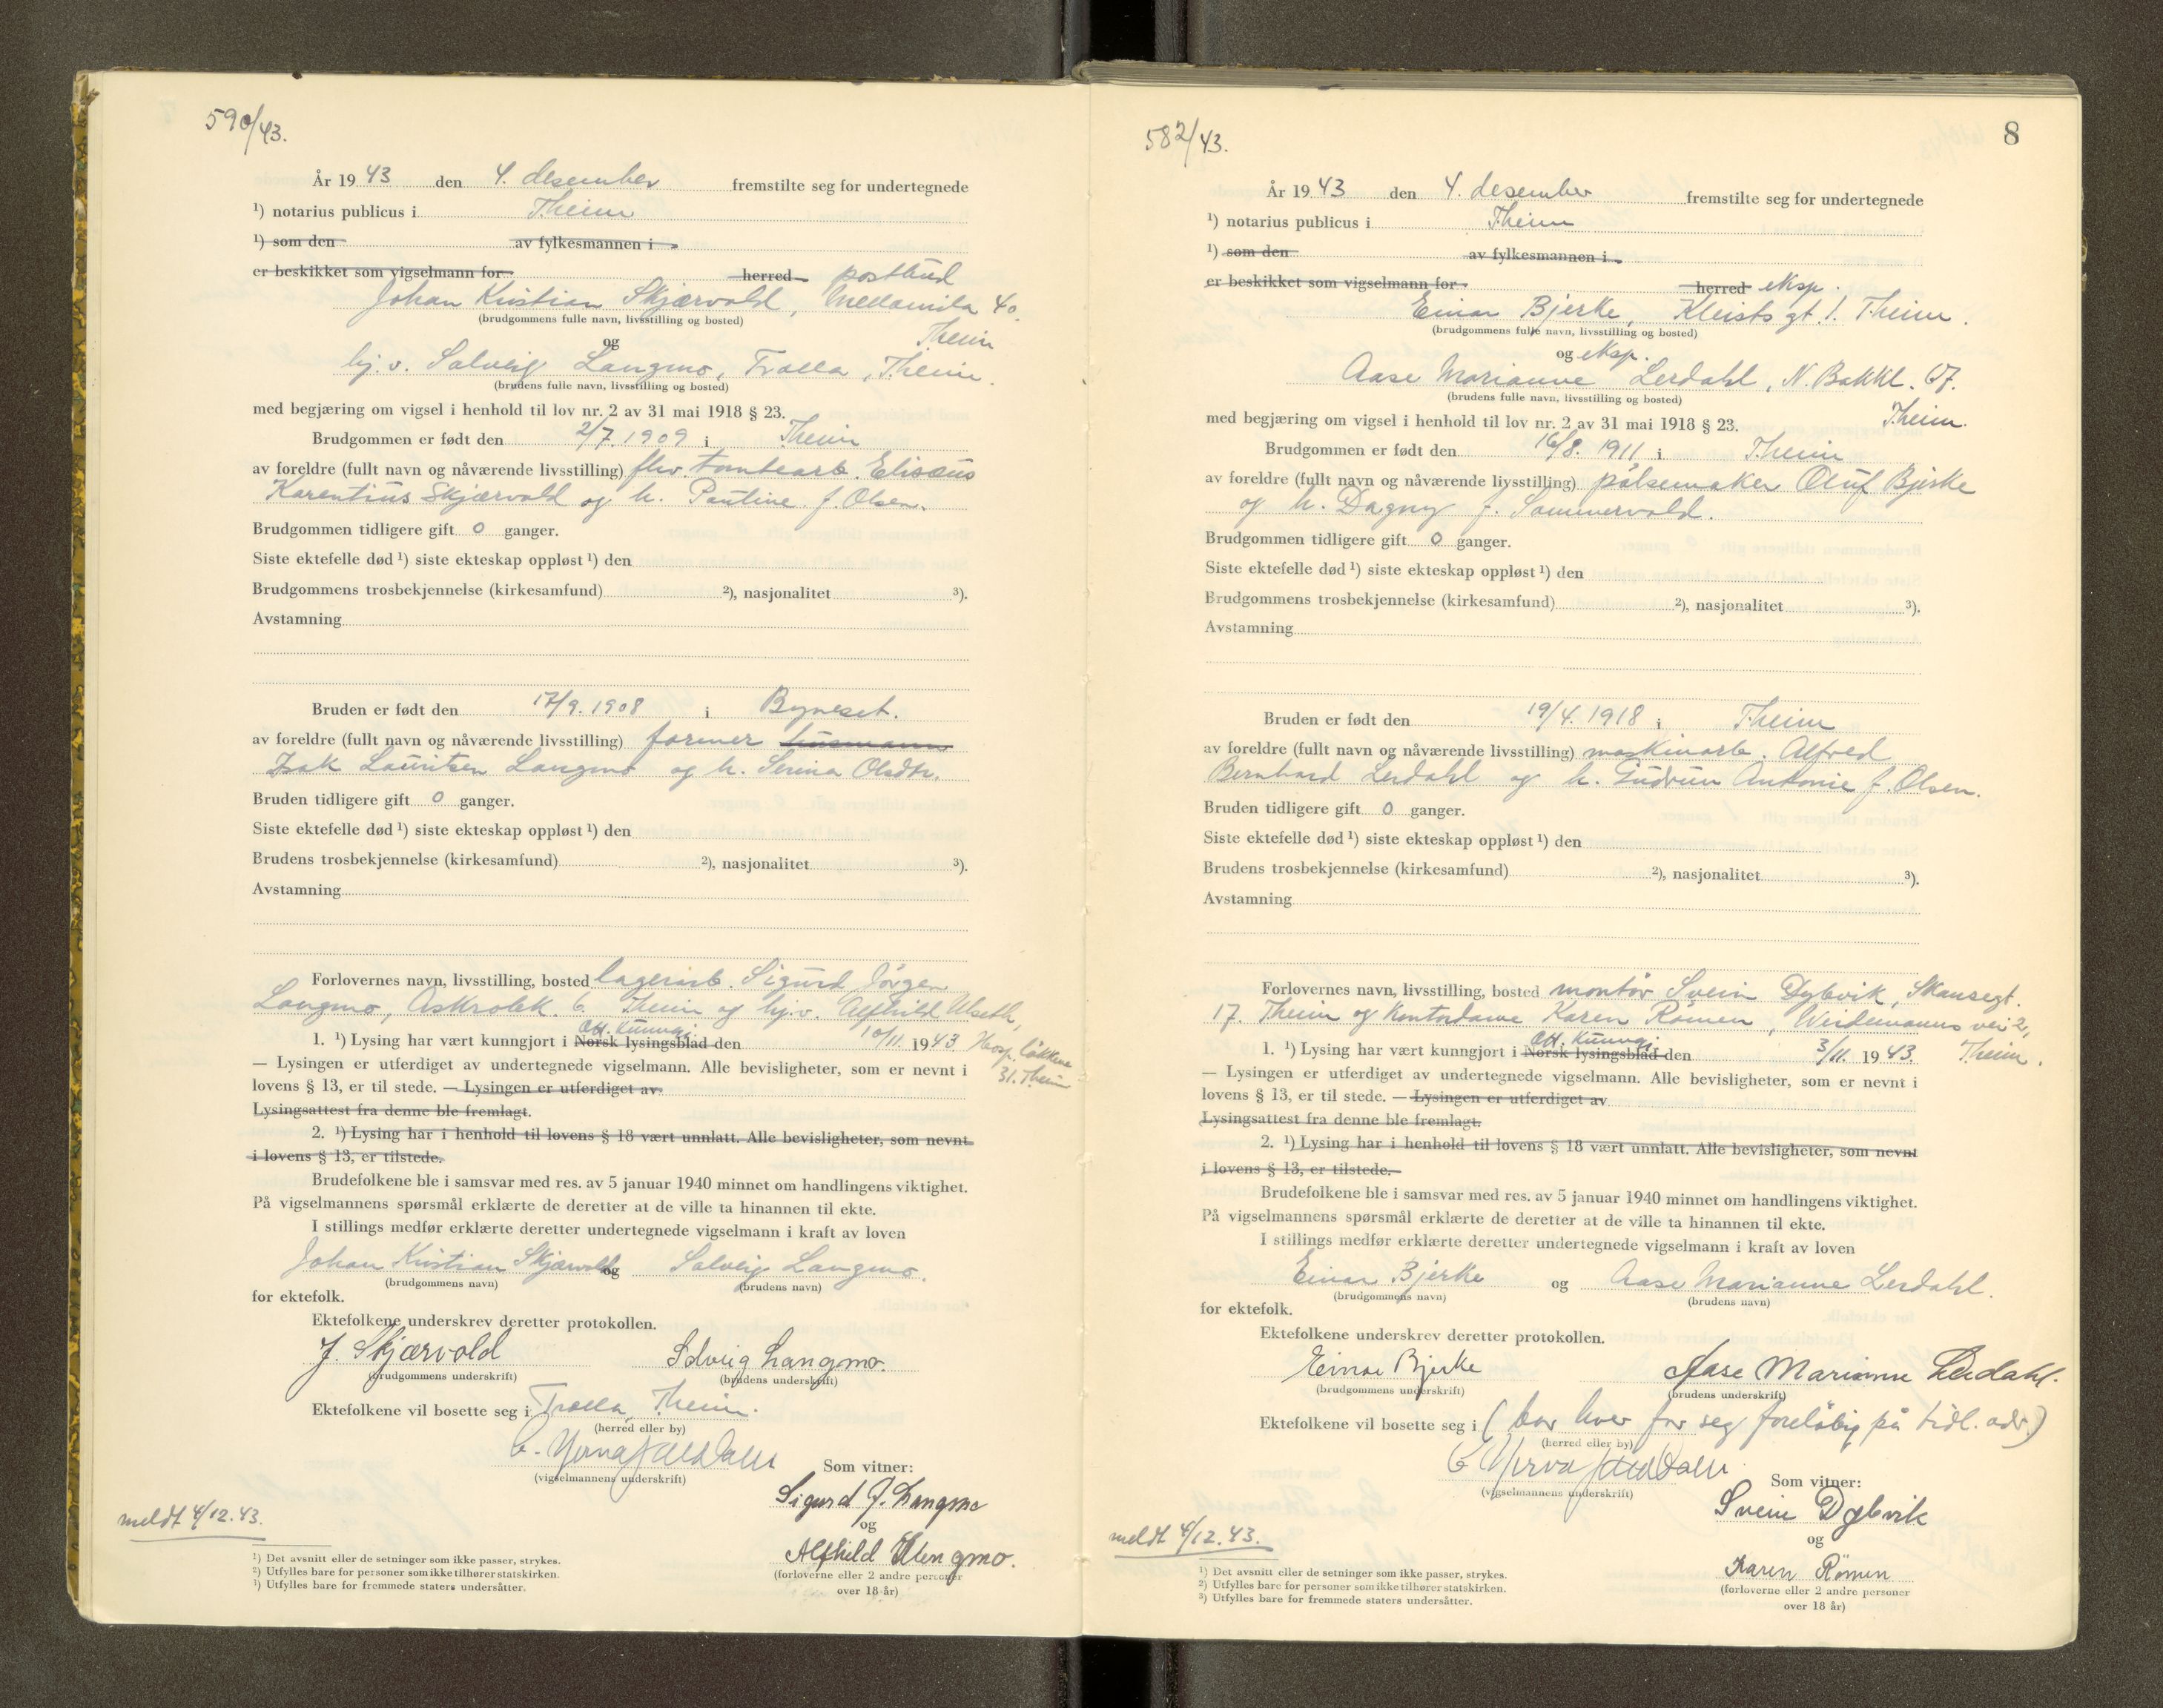 590/43.
År 1943 den 4. desember fremstilte seg for undertegnede
¹) notarius publicus i Theim
¹) som den av fylkesmannen i
er beskikket som vigselmann for herred postbud
Johan Kristian Skjærvold, Mellomila 40.
(brudgommens fulle navn, livsstilling og bosted)
Theim
og
hj.v. Solveig Langmo, Trolla, Theim.
(brudens fulle navn, livsstilling og bosted)
med begjæring om vigsel i henhold til lov nr. 2 av 31 mai 1918 § 23.
Brudgommen er født den 2/7. 1909 i Theim
av foreldre (fullt navn og nåværende livsstilling) fhv. tomtearb. Elisæus
Karentius Skjærvold og h. Pauline f. Olsen.
Brudgommen tidligere gift 0 ganger.
Siste ektefelle død ¹) siste ekteskap oppløst ¹) den
Brudgommens trosbekjennelse (kirkesamfund) ²), nasjonalitet ³).
Avstamning
Bruden er født den 17/9. 1908 i Byneset.
av foreldre (fullt navn og nåværende livsstilling) farmer husmann
Isak Lauritsen Langmo og h. Serina Olsdtr.
Bruden tidligere gift 0 ganger.
Siste ektefelle død ¹) siste ekteskap oppløst ¹) den
Brudens trosbekjennelse (kirkesamfund) ²), nasjonalitet ³).
Avstamning
Forlovernes navn, livsstilling, bosted lagerarb. Sigurd Jörgen
Langmo, Askrolek. 6. Theim og hj.v. Alfhild Ulseth,
Off. Kunngj.
1. ¹) Lysing har vært kunngjort i Norsk lysingsblad den 10/11. 1943 Hosp. løkkene
31. Theim
— Lysingen er utferdiget av undertegnede vigselmann. Alle bevisligheter, som er nevnt i
lovens § 13, er til stede. — Lysingen er utferdiget av
Lysingsattest fra denne ble fremlagt.
2. ¹) Lysing har i henhold til lovens § 18 vært unnlatt. Alle bevisligheter, som nevnt
i lovens § 13, er tilstede.
Brudefolkene ble i samsvar med res. av 5 januar 1940 minnet om handlingens viktighet.
På vigselmannens spørsmål erklærte de deretter at de ville ta hinannen til ekte.
I stillings medfør erklærte deretter undertegnede vigselmann i kraft av loven
Johan Kristian Skjærvold og Solveig Langmo.
(brudgommens navn) (brudens navn)
for ektefolk.
Ektefolkene underskrev deretter protokollen.
J. Skjærvold Solveig Langmo.
(brudgommens underskrift) (brudens underskrift)
Ektefolkene vil bosette seg i Trolla, Theim.
(herred eller by)
(vigselmannens underskrift)
Som vitner:
Sigurd J. Langmo
og
meldt 4/12. 43.
Alfhild
(forloverne eller 2 andre personer
over 18 år)
¹) Det avsnitt eller de setninger som ikke passer, strykes.
²) Utfylles bare for personer som ikke tilhører statskirken.
³) Utfylles bare for fremmede staters undersåtter.
582/43.
8
År 1943 den 4. desember fremstilte seg for undertegnede
¹) notarius publicus i Theim
¹) som den av fylkesmannen i
er beskikket som vigselmann for herred eksp.
Einar Bjerke, Kleists gt. 1. Theim.
(brudgommens fulle navn, livsstilling og bosted)
og eksp.
Aase Marianne Lerdahl, N. Bakkl. 67.
(brudens fulle navn, livsstilling og bosted)
Theim.
med begjæring om vigsel i henhold til lov nr. 2 av 31 mai 1918 § 23.
Brudgommen er født den 16/8. 1911 i Theim
av foreldre (fullt navn og nåværende livsstilling) pølsemaker Oluf Bjerke
og h. Dagny f. Sommervold.
Brudgommen tidligere gift 0 ganger.
Siste ektefelle død ¹) siste ekteskap oppløst ¹) den
Brudgommens trosbekjennelse (kirkesamfund) ²), nasjonalitet ³).
Avstamning
Bruden er født den 19/4. 1918 i Theim
av foreldre (fullt navn og nåværende livsstilling) maskinarb. Alfred
Bernhard Lerdahl og h. Gudrun Antonie f. Olsen.
Bruden tidligere gift 0 ganger.
Siste ektefelle død ¹) siste ekteskap oppløst ¹) den
Brudens trosbekjennelse (kirkesamfund) ²), nasjonalitet ³).
Avstamning
Forlovernes navn, livsstilling, bosted montör Svein Dybvik, Skansegt.
17. Theim og Kontordame Karen Römen, Weidemanns vei 2,
Off. Kunngj.
1. ¹) Lysing har vært kunngjort i Norsk lysingsblad den 3/11. 1943. Theim.
— Lysingen er utferdiget av undertegnede vigselmann. Alle bevisligheter, som er nevnt i
lovens § 13, er til stede. — Lysingen er utferdiget av
Lysingsattest fra denne ble fremlagt.
2. ¹) Lysing har i henhold til lovens § 18 vært unnlatt. Alle bevisligheter, som nevnt
i lovens § 13, er tilstede.
Brudefolkene ble i samsvar med res. av 5 januar 1940 minnet om handlingens viktighet.
På vigselmannens spørsmål erklærte de deretter at de ville ta hinannen til ekte.
I stillings medfør erklærte deretter undertegnede vigselmann i kraft av loven
Einar Bjerke og Aase Marianne Lerdahl.
(brudgommens navn) (brudens navn)
for ektefolk.
Ektefolkene underskrev deretter protokollen.
Einar Bjerke Aase Marianne Lerdahl.
(brudgommens underskrift) (brudens underskrift)
Ektefolkene vil bosette seg i (bor hver for seg foreløbig på tidl. adr.)
(herred eller by)
(vigselmannens underskrift)
Som vitner:
Svein Dybvik
og
meldt 4/12. 43.
Karen Römen
(forloverne eller 2 andre personer
over 18 år)
¹) Det avsnitt eller de setninger som ikke passer, strykes.
²) Utfylles bare for personer som ikke tilhører statskirken.
³) Utfylles bare for fremmede staters undersåtter.